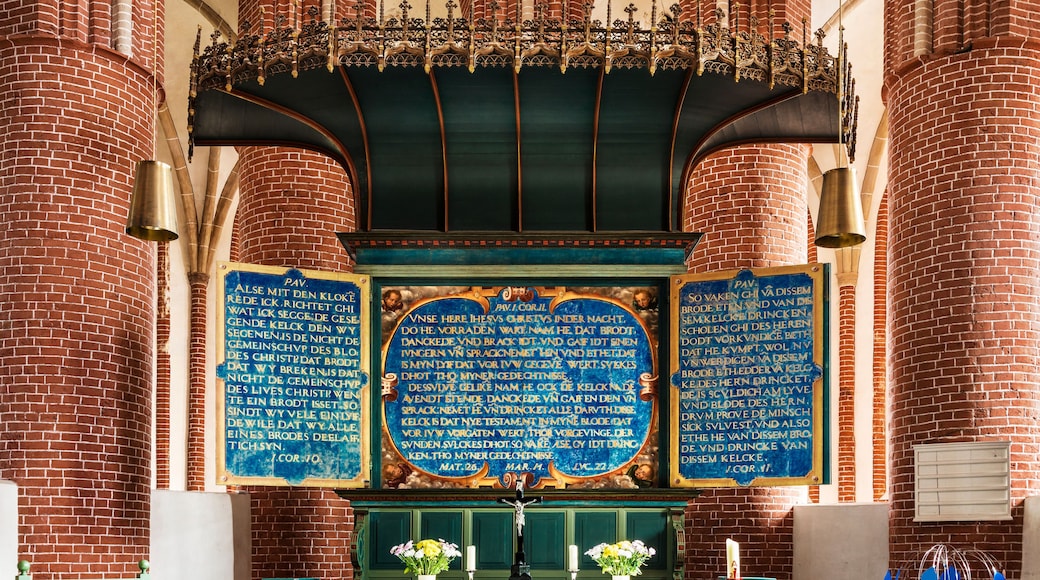 PAV.
ALSE MIT DEN KLOKE
REDE ICK. RICHTET GHI
WAT ICK SEGGE: DE GESE
GENDE KELCK DEN WY
SEGENEN IS DE NICHT DE
GEMEINSCHVP DES BLO
DES CHRISTI? DAT BRODT
DAT WY BREKEN, IS DAT
NICHT DE GEMEINSCHVP
DES LIVES CHRISTI? WEN
TE EIN BRODT ISSET. SO
SINDT WY VELE EIN LYF.
DE WILE DAT WY ALLE
EINES BRODES DEELAFF
TICH SYN.
1.COR.10.
PAV. 1.COR.11.
VNSE HERE IHESVS CHRISTVS IN DER NACHT.
DO HE VORRADEN WART. NAM HE DAT BRODT.
DANCKEDE VND BRACK IDT. VND GAF IDT SINEN
IVNGERN VN SPRACK NEMET HEN VND ETHET, DAT
IS MYN LYF DAT VOR IVW GEGEVE WERT. SVLKES
DHOT THO MYNER GEDECHTNISSE.
DESSVLVE GELIKE NAM HE OCK DE KELCK NA DE
AVENDT ETENDE, DANCKEDE VN GAFF EN DEN VN
SPRACK, NEMET HE VN DRINCKET ALLE DARVTH. DISSE
KELCK IS DAT NYE TESTAMENT IN MYNE BLODE, DAT
VOR IVW VORGATEN WERT, THO VORGEVINGE DER
SVNDEN. SVLCKES DHOT, SO VAKE GY IDT DRINC
KEN, THO MYNER GEDECHTNISSE.
MAT.26. MAR.14. LVC.22.
PAV.
SO VAKEN GHI VA DISSEM
BRODE ETEN VND VAN DIS
SEM KELCKE DRINCKEN
SCHOLEN GHI DES HEREN
DODT VORKVNDIGE BETH
DAT HE KVMPT. WOL NV
VN WERDIGEN VA DISSEM
BRODE ETH EDDER VA KELC
KE DES HEREN DRINCKET.
DE IS SCVLDICH AM LYVE
VND BLODE DES HEREN
DRVM PROVE DE MINSCH
SICK SVLVEST VND ALSO
ETHE HE VAN DISSEM BRO
DE VND DRINCKE VAN
DISSEM KELCKE.
1.COR.11.